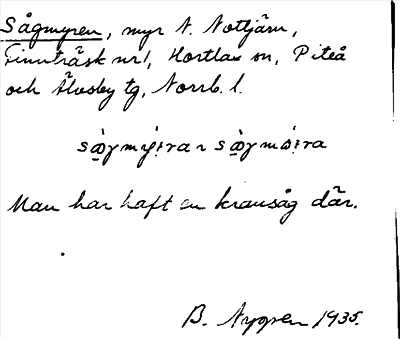 Sågmyren, myr N. Nottjärn,
Finnträsk nr 1, Hortlax sn, Piteå
och Älvsby tg, Norrb. l.
Man har haft en kransåg där.
B. Nygren 1935.